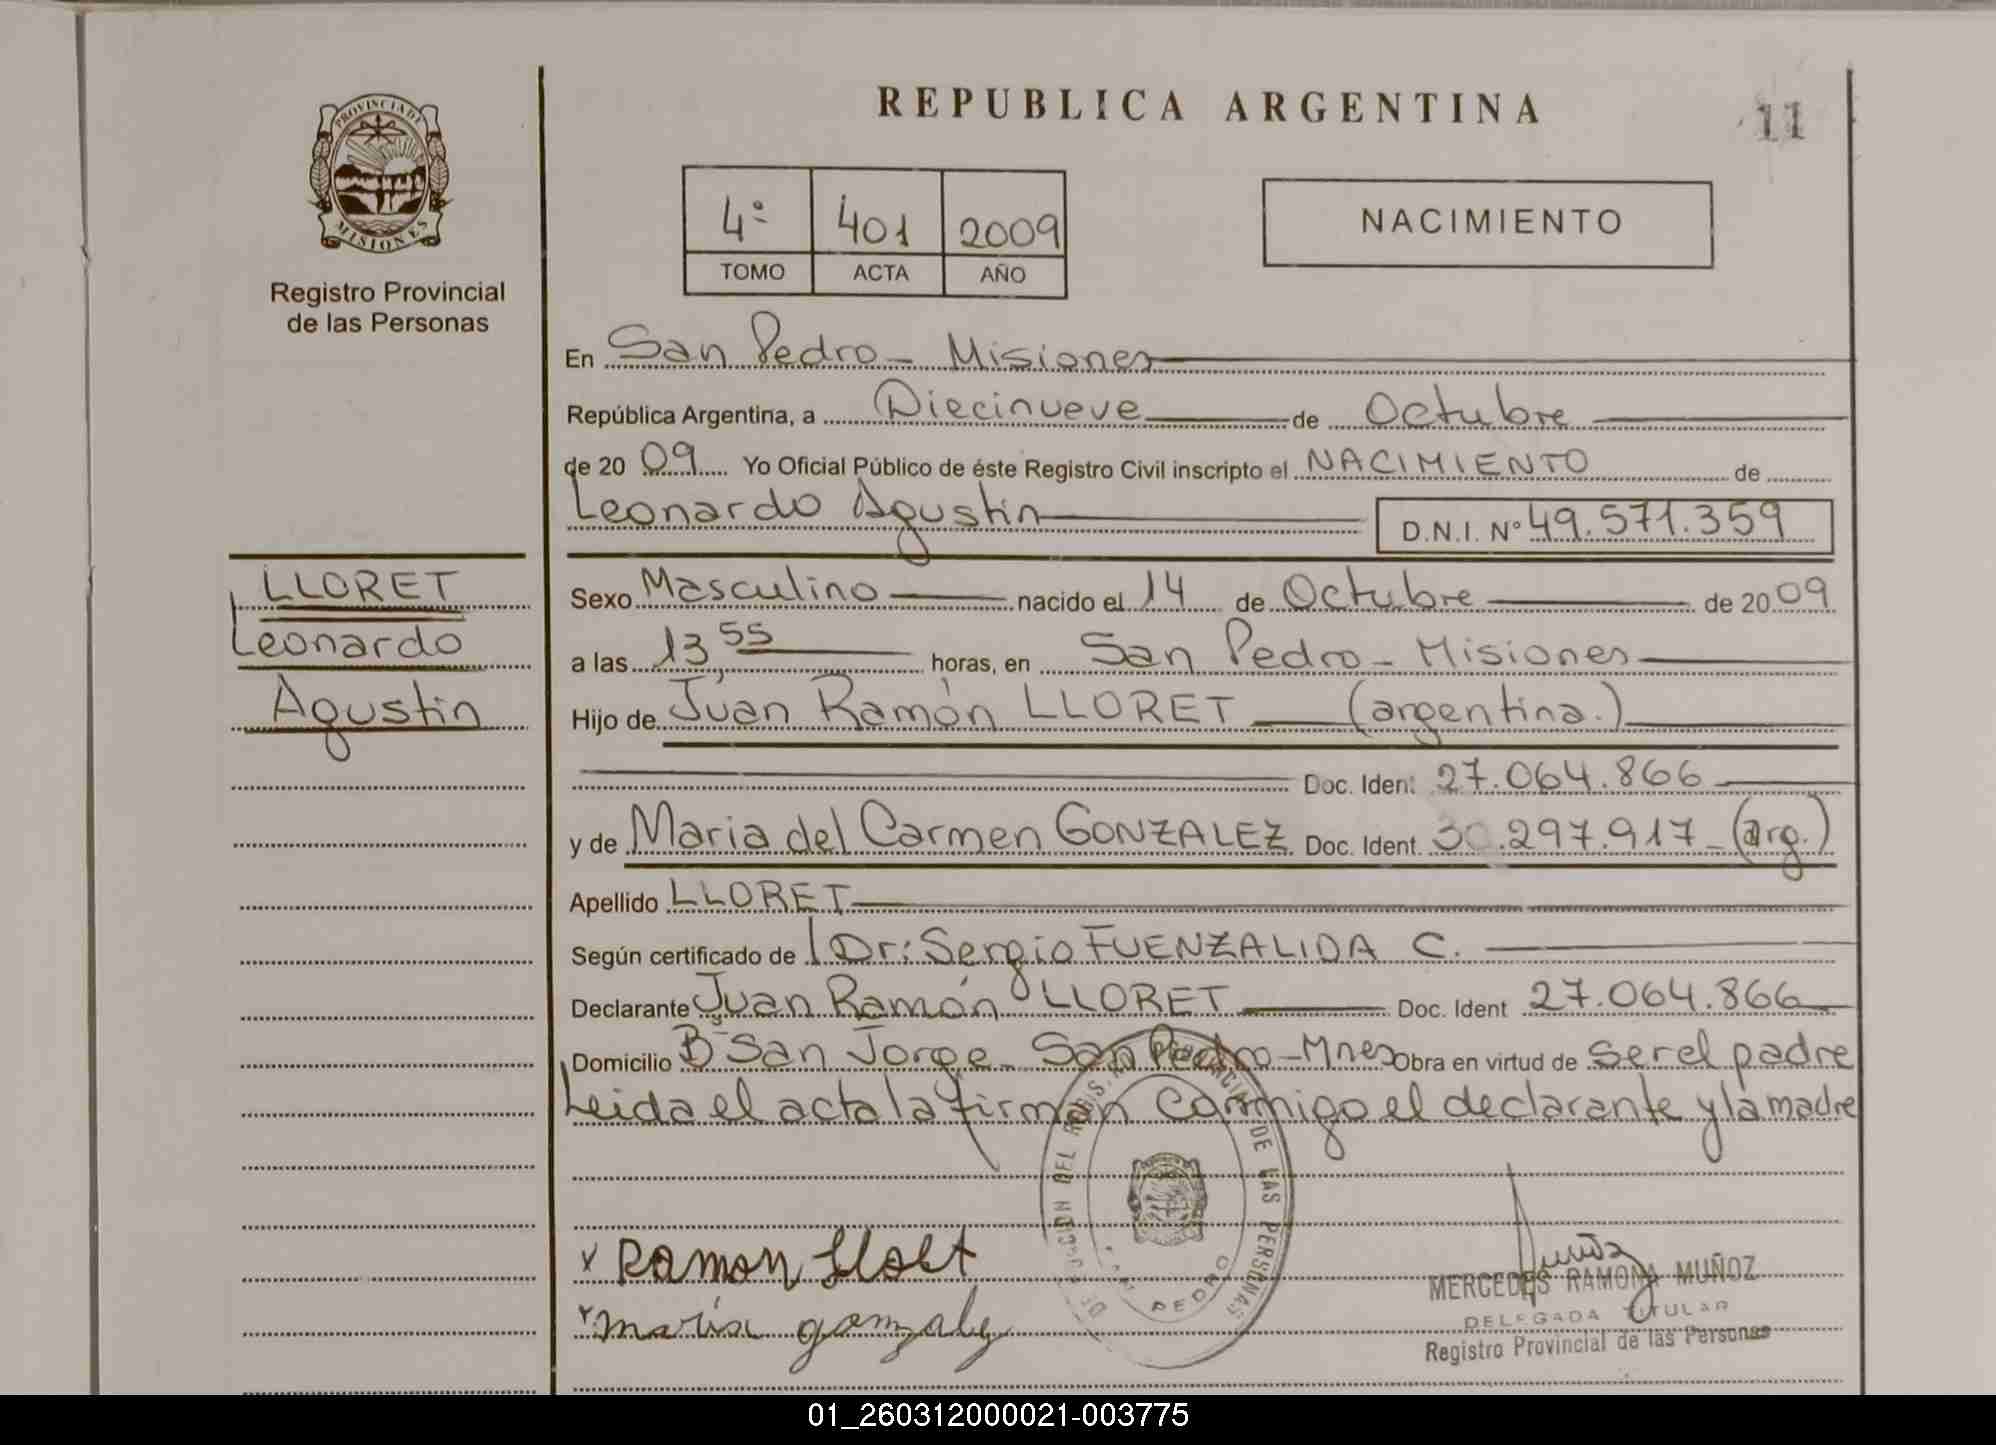 REPUBLICA ARGENTINA
11
PROVINCIA DE
MISIONES
Registro Provincial
de las Personas
4º 401 2009
TOMO ACTA AÑO
NACIMIENTO
En San Pedro - Misiones
República Argentina, a Diecinueve de Octubre
de 20 09 Yo Oficial Público de éste Registro Civil inscripto el NACIMIENTO de
Leonardo Agustin D.N.I. Nº 49.571.359
LLORET
Leonardo
Agustin
Sexo Masculino nacido el 14 de Octubre de 20 09
a las 13,55 horas, en San Pedro - Misiones
Hijo de Juan Ramón LLORET (argentina.)
Doc. Ident 27.064.866
y de Maria del Carmen GONZALEZ Doc. Ident. 30.297.917 - (arg.)
Apellido LLORET
Según certificado de Dr: Sergio FUENZALIDA C.
Declarante Juan Ramón LLORET Doc. Ident 27.064.866
Domicilio Bº San Jorge - San Pedro - Mnes Obra en virtud de ser el padre
Leida el acta la firman conmigo el declarante y la madre
DEL REG. PROVINCIAL DE LAS PERSONAS
PEDRO
x Ramon
x maria gonzalez
MERCEDES RAMONA MUÑOZ
DELEGADA TITULAR
Registro Provincial de las Personas
01_260312000021-003775